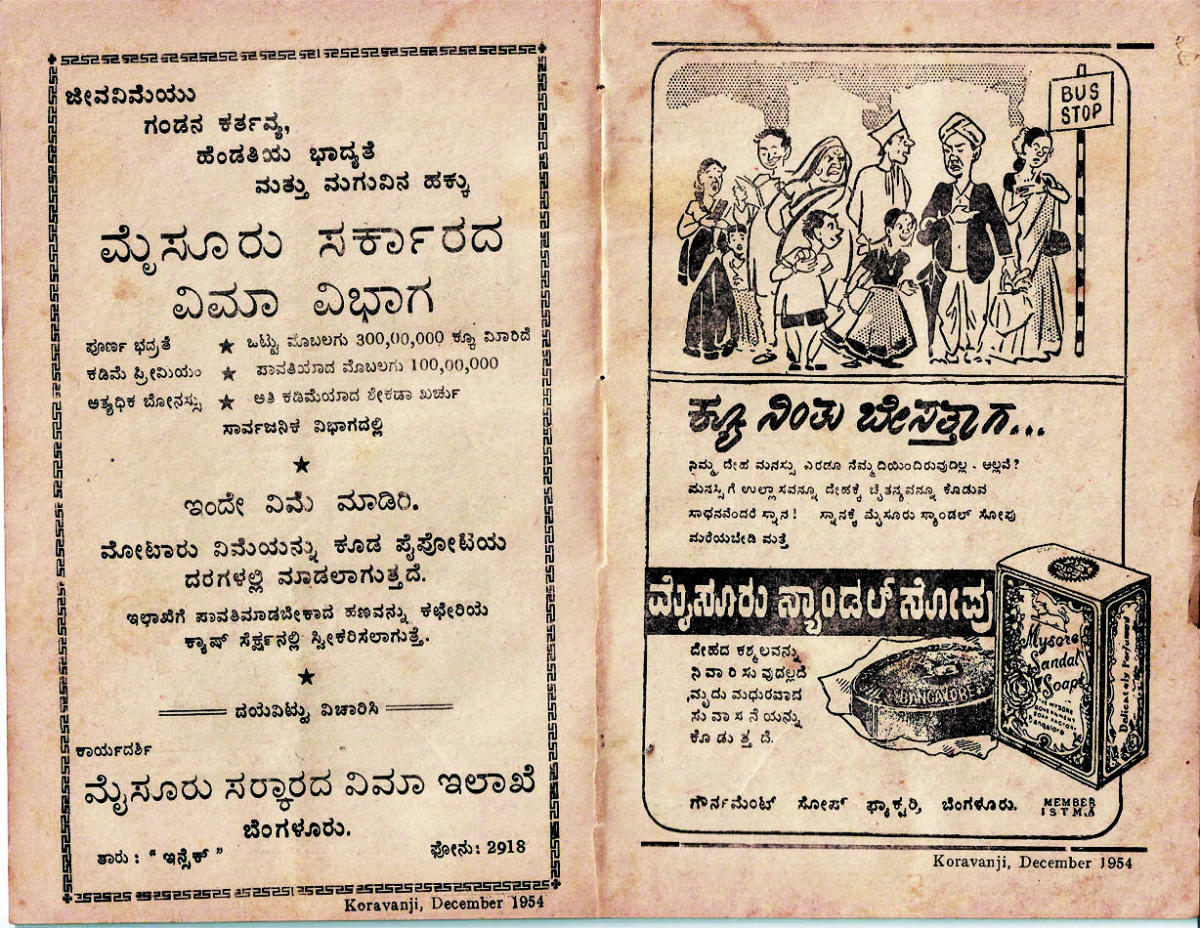 ಜೀವವಿಮೆಯು
ಗಂಡನ ಕರ್ತವ್ಯ,
ಹೆಂಡತಿಯ ಭಾದ್ಯತೆ
ಮತ್ತು ಮಗುವಿನ ಹಕ್ಕು
ಮೈಸೂರು ಸರ್ಕಾರದ
ವಿಮಾ ವಿಭಾಗ
ಪೂರ್ಣ ಭದ್ರತೆ ★ ಒಟ್ಟು ಮೊಬಲಗು 300,00,000 ಕ್ಕೂ ಮೀರಿದೆ
ಕಡಿಮೆ ಪ್ರೀಮಿಯಂ ★ ಪಾವತಿಯಾದ ಮೊಬಲಗು 100,00,000
ಅತ್ಯಧಿಕ ಬೋನಸ್ಸು ★ ಅತಿ ಕಡಿಮೆಯಾದ ಶೇಕಡಾ ಖರ್ಚು
ಸಾರ್ವಜನಿಕ ವಿಭಾಗದಲ್ಲಿ
★
ಇಂದೇ ವಿಮೆ ಮಾಡಿರಿ.
ಮೋಟಾರು ವಿಮೆಯನ್ನು ಕೂಡ ಪೈಪೋಟಿಯ
ದರಗಳಲ್ಲಿ ಮಾಡಲಾಗುತ್ತದೆ.
ಇಲಾಖೆಗೆ ಪಾವತಿಮಾಡಬೇಕಾದ ಹಣವನ್ನು ಕಛೇರಿಯ
ಕ್ಯಾಷ್ ಸೆರ್ಕ್ಷನಲ್ಲಿ ಸ್ವೀಕರಿಸಲಾಗುತ್ತೆ.
★
ದಯವಿಟ್ಟು ವಿಚಾರಿಸಿ
ಕಾರ್ಯದರ್ಶಿ
ಮೈಸೂರು ಸರ್ಕಾರದ ವಿಮಾ ಇಲಾಖೆ
ಬೆಂಗಳೂರು.
ತಾರು : " ಇನ್ಸೆಕ್ " ಫೋನು: 2918
Koravanji, December 1954
BUS
STOP
ಕ್ಯೂ ನಿಂತು ಬೇಸತ್ತಾಗ...
ನಿಮ್ಮ ದೇಹ ಮನಸ್ಸು ಎರಡೂ ನೆಮ್ಮದಿಯಿಂದಿರುವುದಿಲ್ಲ - ಅಲ್ಲವೆ?
ಮನಸ್ಸಿಗೆ ಉಲ್ಲಾಸವನ್ನೂ ದೇಹಕ್ಕೆ ಚೈತನ್ಯವನ್ನೂ ಕೊಡುವ
ಸಾಧನವೆಂದರೆ ಸ್ನಾನ! ಸ್ನಾನಕ್ಕೆ ಮೈಸೂರು ಸ್ಯಾಂಡಲ್ ಸೋಪು
ಮರೆಯಬೇಡಿ ಮತ್ತೆ
ಮೈಸೂರು ಸ್ಯಾಂಡಲ್ ಸೋಪು
ದೇಹದ ಕಶ್ಮಲವನ್ನು
ನಿವಾರಿಸುವುದಲ್ಲದೆ
ಮೃದು ಮಧುರವಾದ
ಸುವಾಸನೆಯನ್ನು
ಕೊಡುತ್ತದೆ.
BANGALORE
Mysore
Sandal
Soap
MYSORE
GOVERNMENT
SOAP FACTORY
Bangalore
Delicately Perfumed
ಗೌರ್ನಮೆಂಟ್ ಸೋಪ್ ಫ್ಯಾಕ್ಟರಿ, ಬೆಂಗಳೂರು.
MEMBER
I S T M A
Koravanji, December 1954